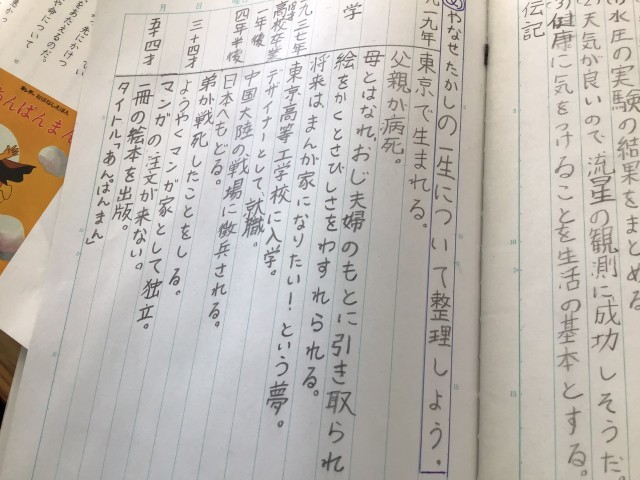 水圧の実験の結果をまとめる
天気が良いので流星の観測に成功しそうだ。
健康に気をつけることを生活の基本とする。
伝記
め やなせたかしの一生について整理しよう。
一九一九年 東京で生まれる。
父親が病死。
母とはなれ、おじ夫婦のもとに引き取られ
学 絵をかくとさびしさをわすれられる。
将来はまんが家になりたい!という夢。
一九三七年 東京高等工学校に入学。
高校卒業 デザイナーとして、就職。
一年後 中国大陸の戦場に徴兵される。
四年半後 日本へもどる。
弟が戦死したことをしる。
三十四才 ようやくマンガ家として独立。
マンガの注文が来ない。
五十四才 一冊の絵本を出版。
タイトル「あんぱんまん」
あんぱんまん